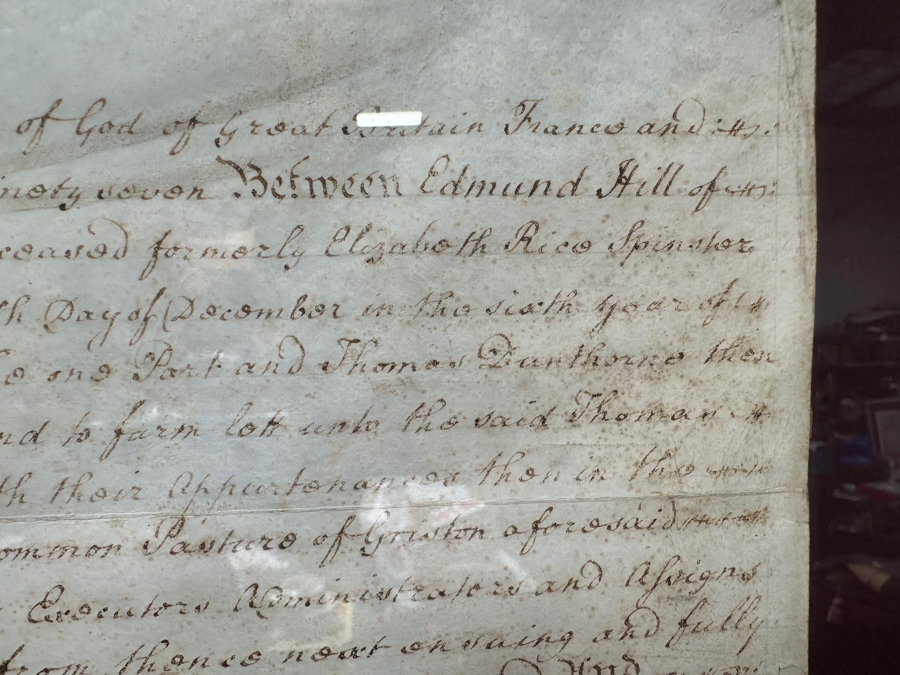 of God of Great Britain France and
inety seven Between Edmund Hill of
ceased formerly Elizabeth Rice Spinster
th Day of December in the sixth year of
e one Part and Thomas Dunthorne then
nd to farm lett unto the said Thomas
th their Appurtenances then in the
ommon Pasture of Griston aforesaid
Executors Administrators and Assigns
from thence next ensuing and fully
And